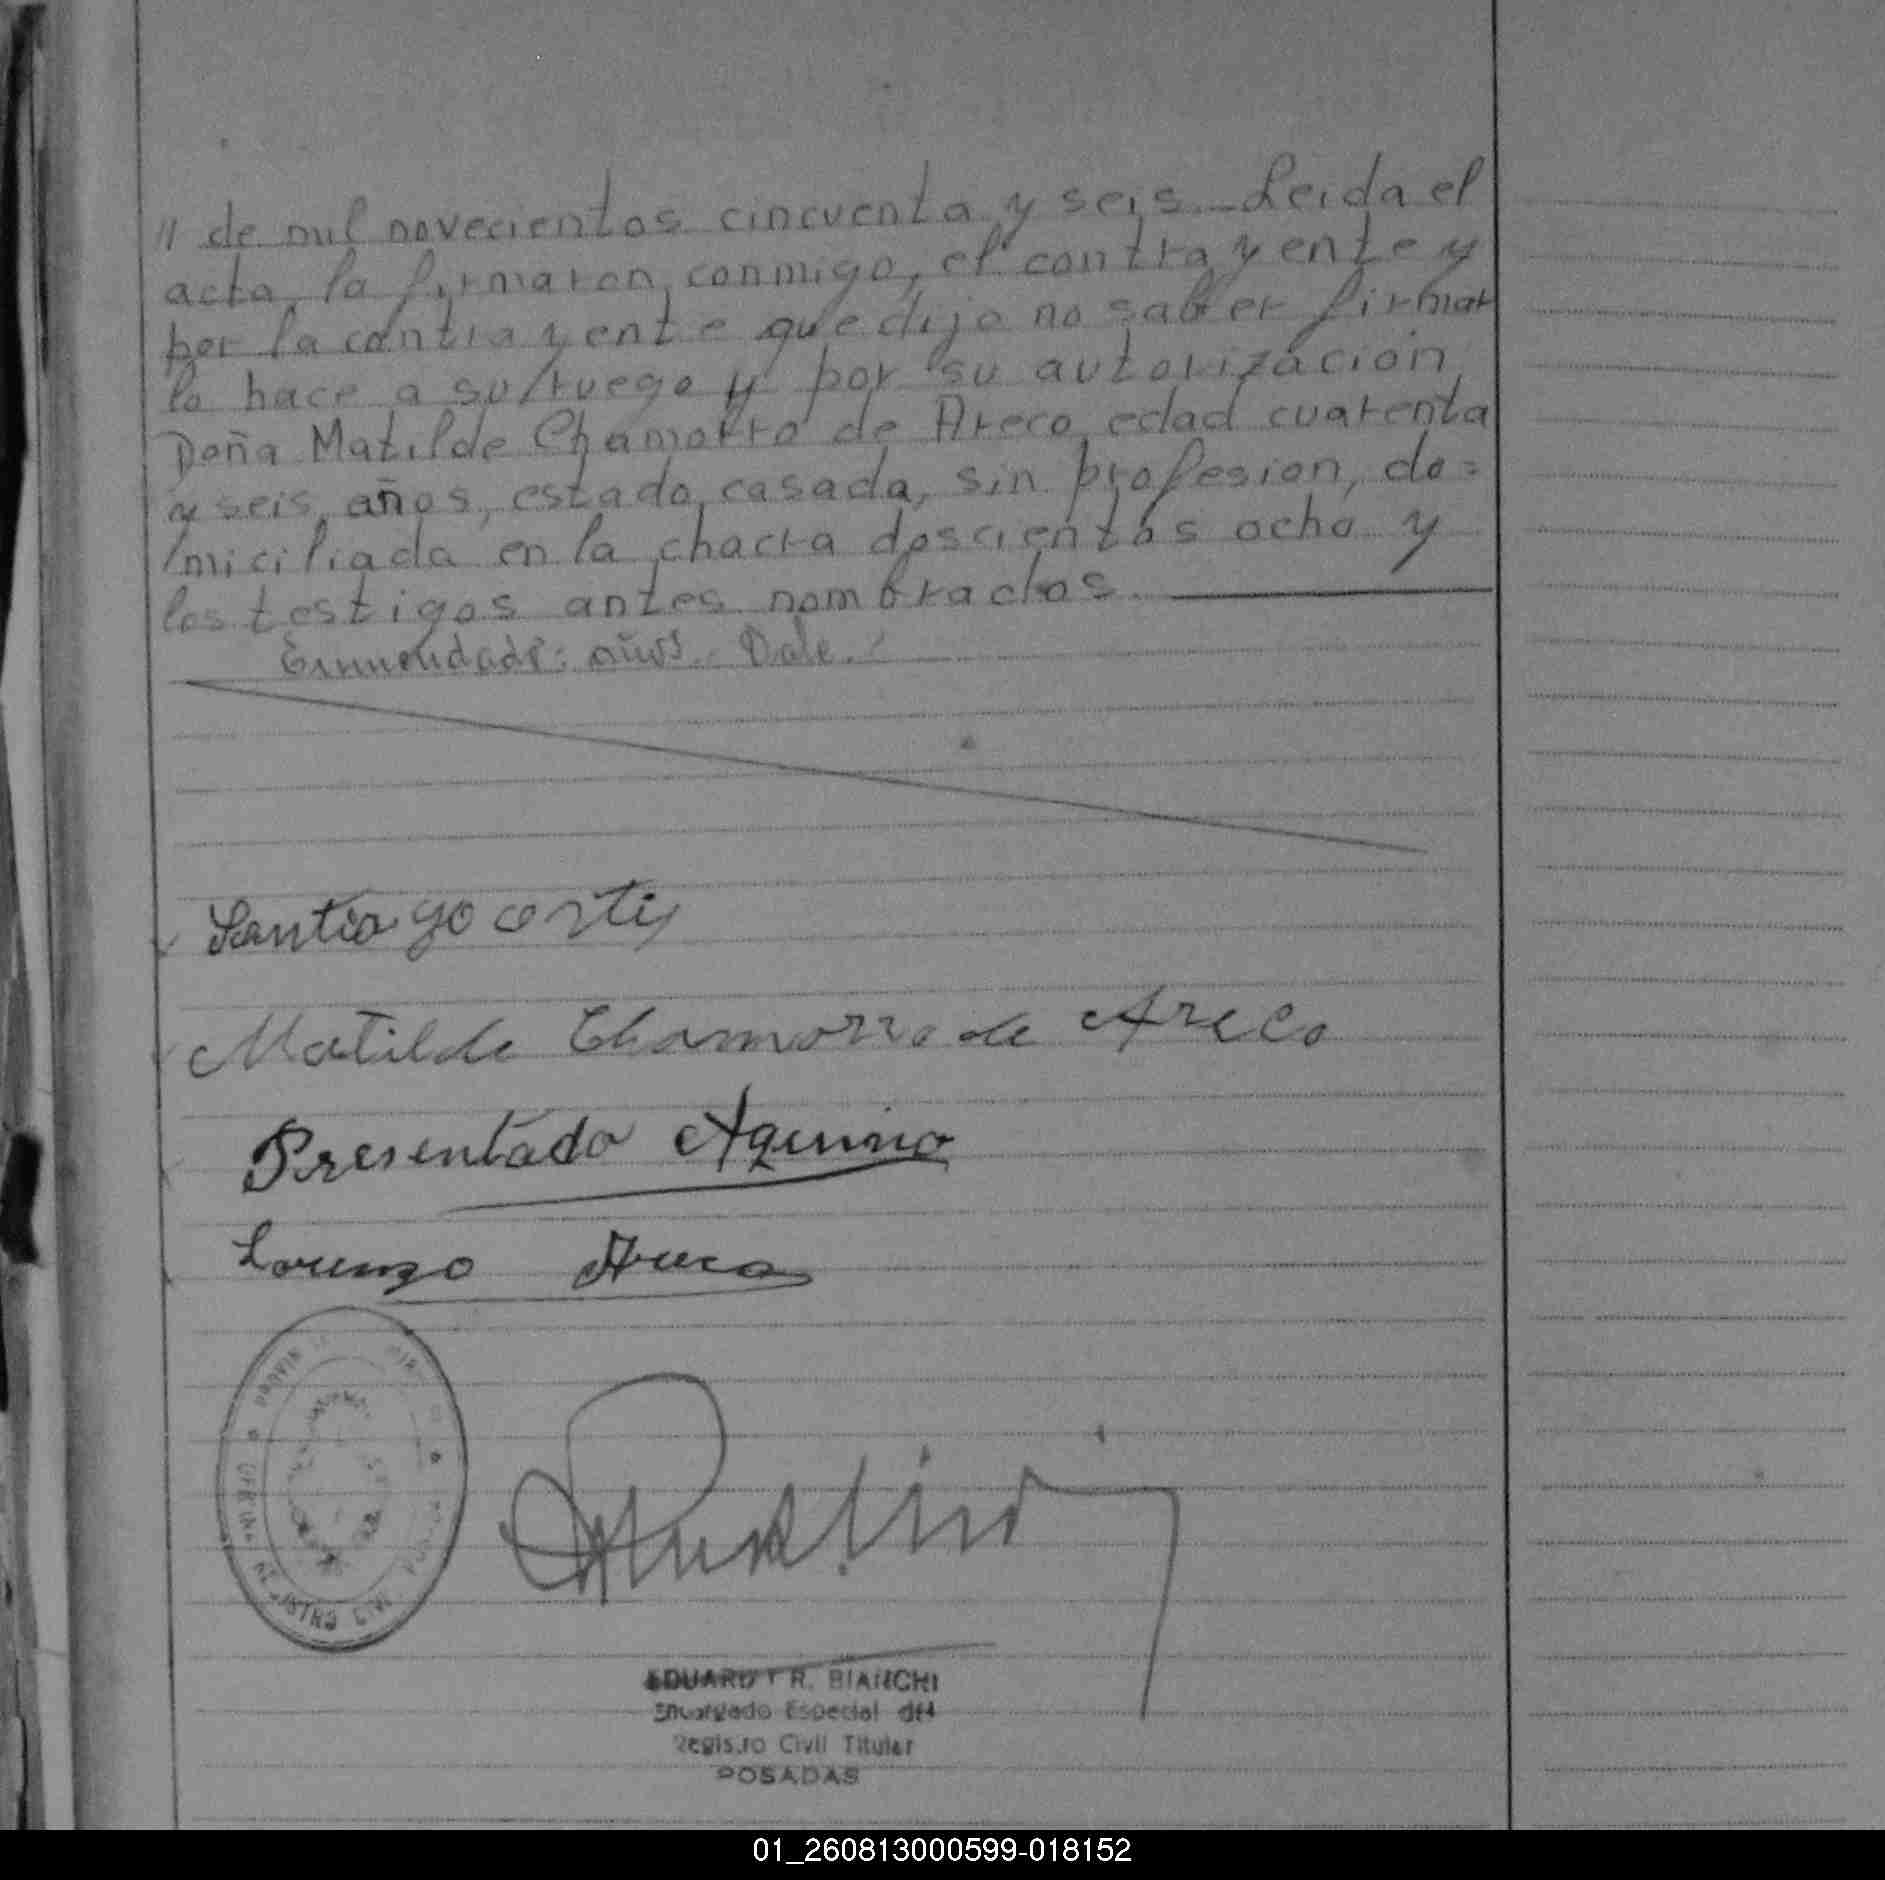 // de mil novecientos cincuenta y seis.- Leida el
acta, la firmaron conmigo, el contrayente y
por la contrayente que dijo no saber firmar
lo hace a su ruego y por su autorización
Doña Matilde Chamorro de Areco, edad cuarenta
y seis, años, estado, casada, sin profesion, do=
miciliada en la chacra doscientos ocho y
los testigos antes nombrados.
Enmendado: años. Vale.
Santiago ortiz
Matilde Chamorro de Areco
Presentado Aquino
Lorenzo Areco
OFICINA REGISTRO CIVIL
EDUARDO R. BIANCHI
Encargado Especial del
Registro Civil Titular
POSADAS
01_260813000599-018152